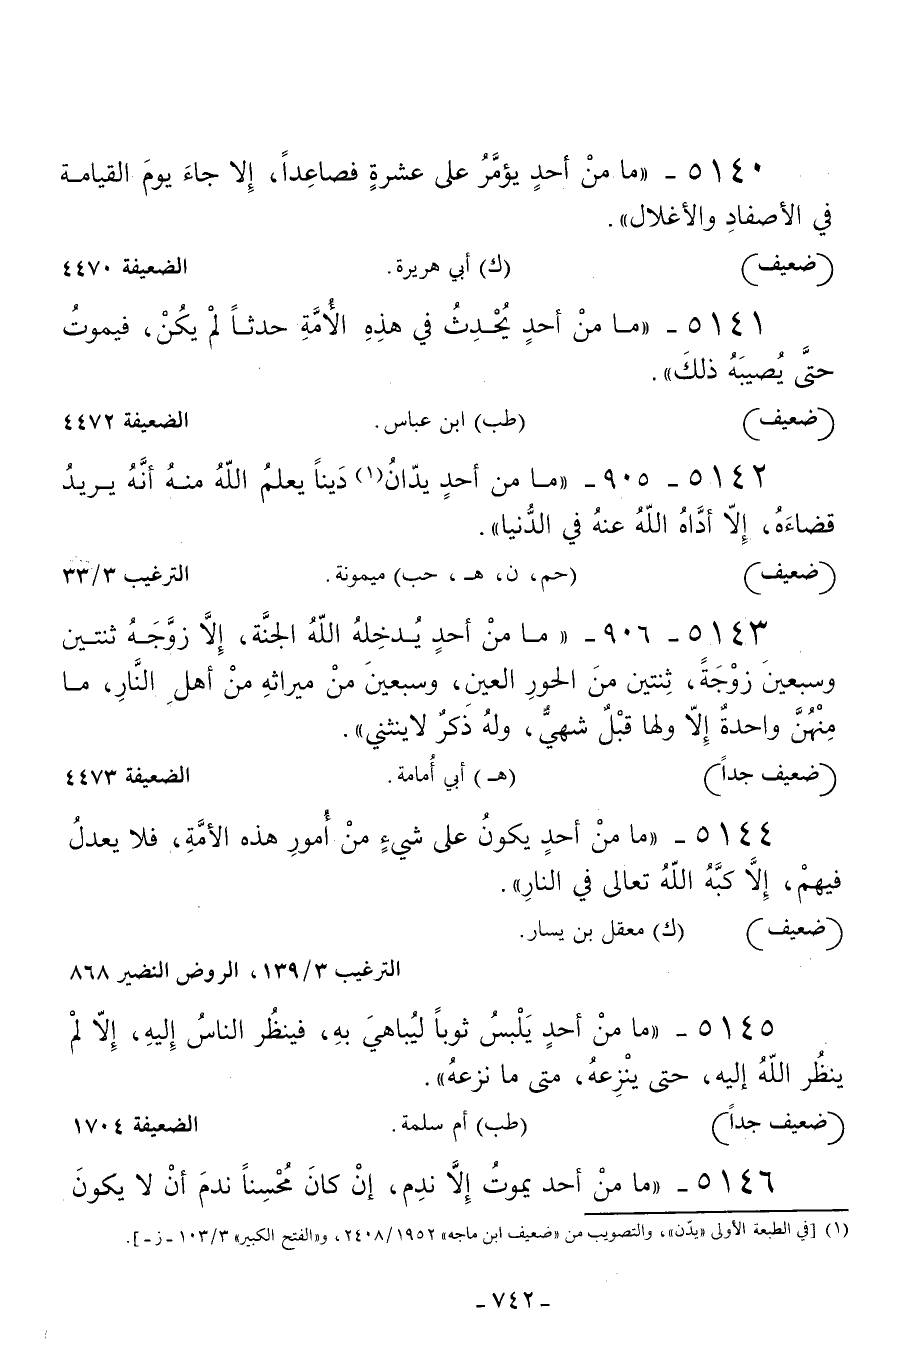 ٥١٤٠ ـ «ما منْ أحدٍ يؤمَّرُ على عشرةٍ فصاعِداً، إِلا جاءَ يومَ القيامـة
في الأصفادِ والأغلال».
(ضعيف) (ك) أبي هريرة. الضعيفة ٤٤٧٠
٥١٤١ ـ «مـا منْ أحدٍ يُحْـدِثُ في هذِهِ الأُمَّةِ حدثـاً لمْ يكُنْ، فيموتُ
حتَّى يُصيبَهُ ذلكَ».
(ضعيف) (طب) ابن عباس. الضعيفة ٤٤٧٢
٥١٤٢ ـ ٩٠٥ـ «مـا من أحدٍ يدّانُ(١) دَيناً يعلمُ اللّهُ منـهُ أنَّهُ يـريدُ
قضاءَهُ، إِلّا أدَّاهُ اللّهُ عنهُ في الدُّنيا».
(ضعيف) (حم، ن، هـ، حب) ميمونة. الترغيب ٣/ ٣٣
٥١٤٣ ـ ٩٠٦ـ « مـا منْ أحدٍ يُـدخِلهُ اللّهُ الجنَّة، إِلَّا زوَّجَـهُ ثنتـين
وسبعينَ زوْجَةً، ثِنتين منَ الحورِ العين، وسبعينَ منْ ميراثهِ منْ أهلِ النَّارِ، مـا
مِنْهُنَّ واحدةٌ إِلّا ولها قبْلٌ شهيٌّ، ولهُ ذَكرٌ لاينثني».
(ضعيف جداً) (هـ) أبي أُمامة. الضعيفة ٤٤٧٣
٥١٤٤ ـ «ما منْ أحدٍ يكونُ على شيءٍ منْ أُمورِ هذه الأمَّةِ، فلا يعدلُ
فيهمْ، إِلَّا كبَّهُ اللّهُ تعالى في النارِ».
(ضعيف) (ك) معقل بن يسار.
الترغيب ٣/ ١٣٩، الروض النضير ٨٦٨
٥١٤٥ ـ «ما منْ أحدٍ يَلْبسُ ثوباً ليُباهيَ بهِ، فينظُر الناسُ إليهِ، إِلّا لمْ
ينظُر اللّهُ إليه، حتى ينْزِعهُ، متى ما نزعهُ».
(ضعيف جداً) (طب) أم سلمة. الضعيفة ١٧٠٤
٥١٤٦ ـ «ما منْ أحد يموتُ إلَّا ندِم، إنْ كانَ مُحْسِناً ندمَ أنْ لا يكونَ
(١) [في الطبعة الأولى «يدّن»، والتصويب من «ضعيف ابن ماجه» ٢٤٠٨/١٩٥٢، و«الفتح الكبير» ١٠٣/٣ ـ ز ـ].
ـ ٧٤٢ ـ